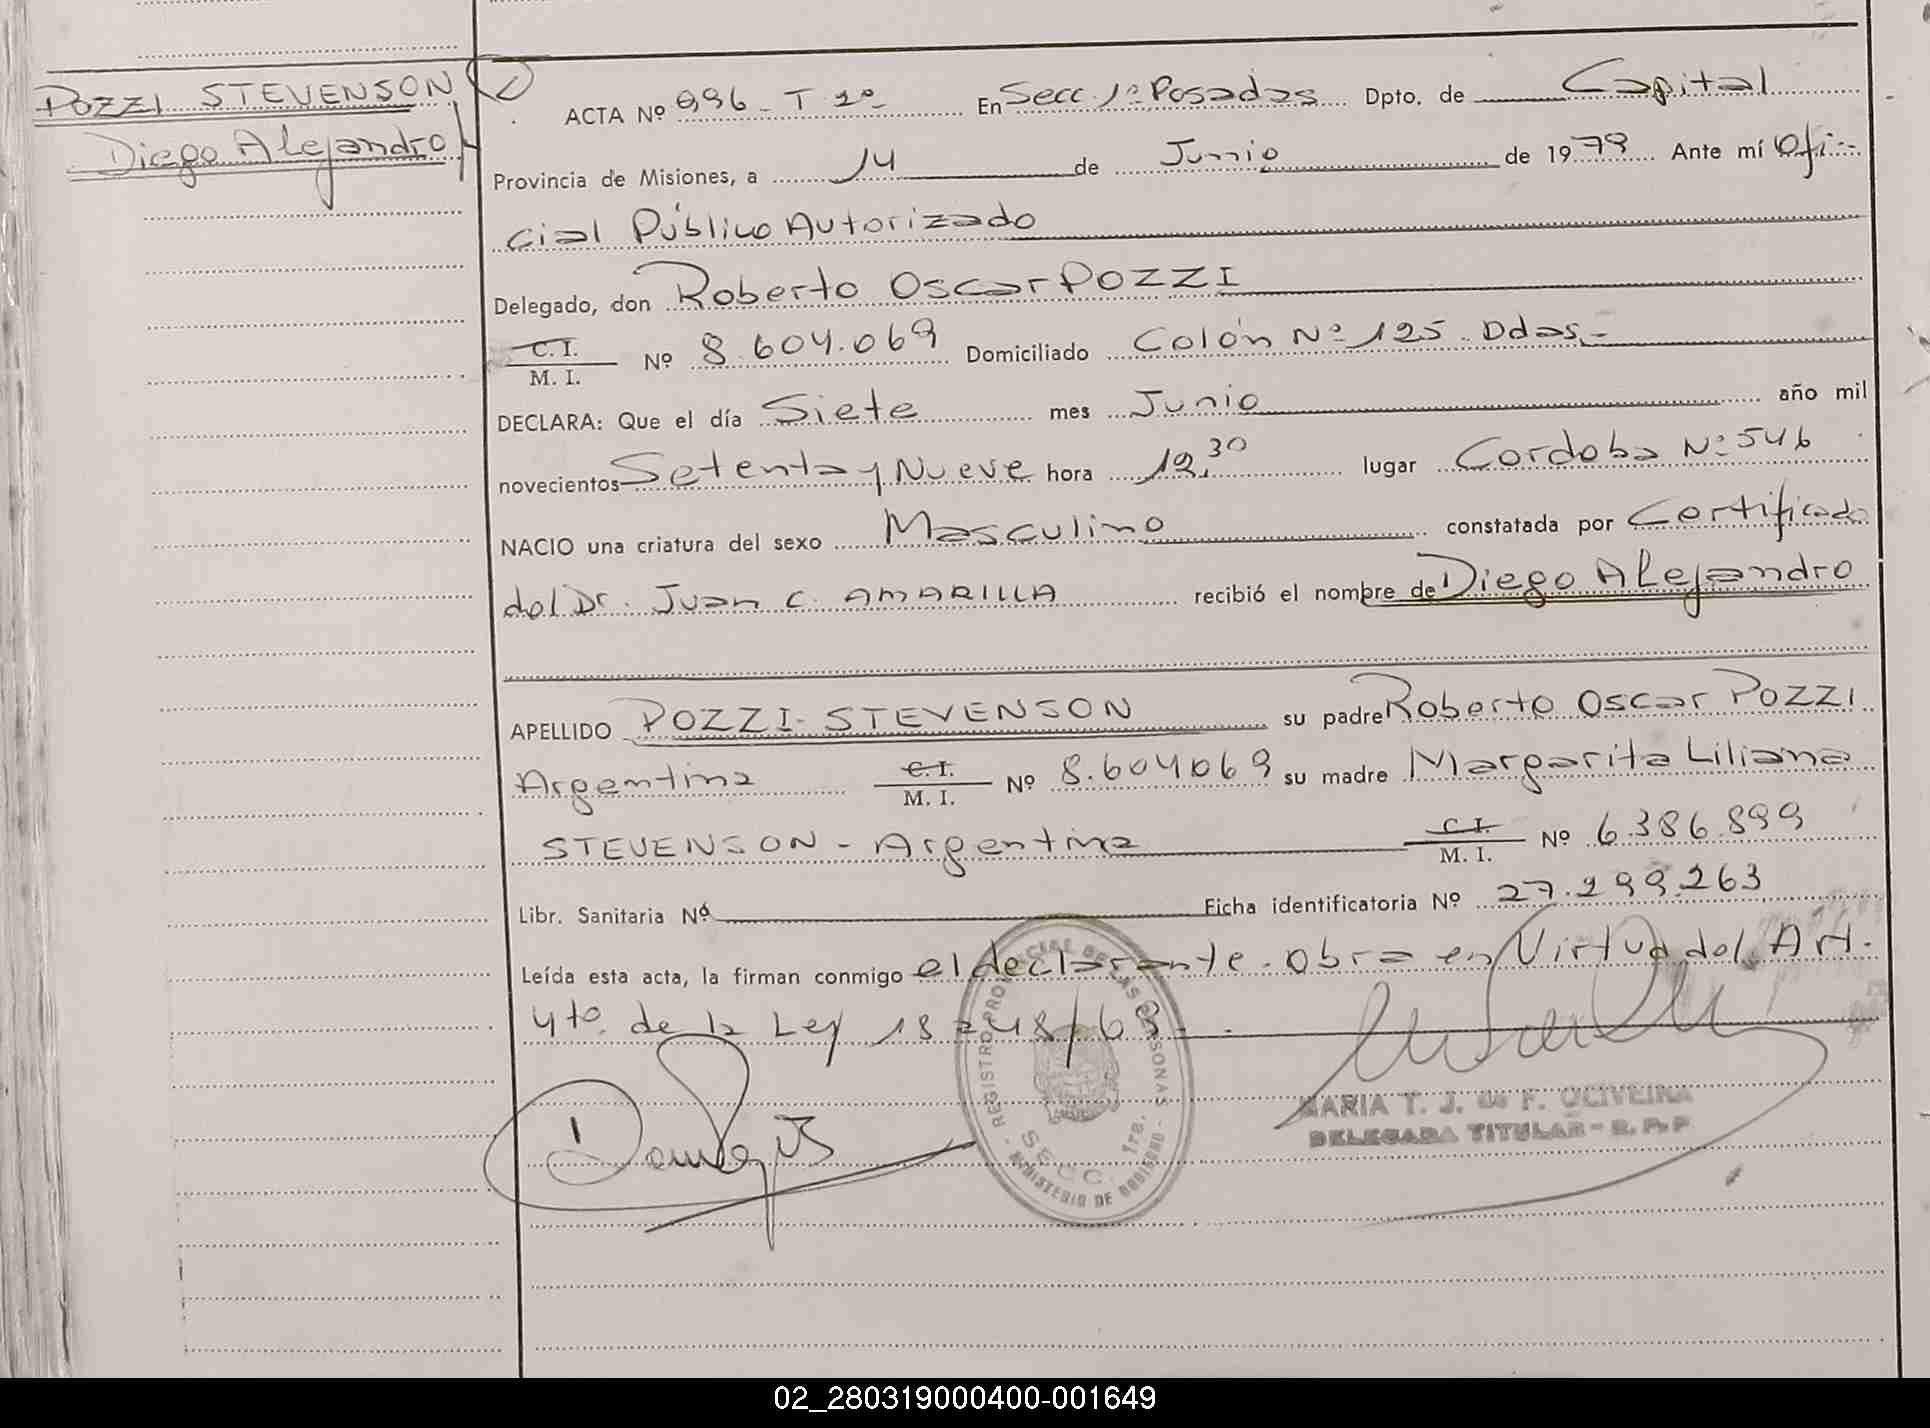 POZZI STEVENSON
Diego Alejandro
ACTA Nº 996 - T 2º En Secc. 1ª Posadas Dpto. de Capital
Provincia de Misiones, a 14 de Junio de 1979 Ante mí Ofi-
cial Público Autorizado
Delegado, don Roberto Oscar POZZI
C. I.
M. I. Nº 8.604.069 Domiciliado Colón Nº 125. Pdas.-
DECLARA: Que el día Siete mes Junio año mil
novecientos Setenta y Nueve hora 12,30 lugar Cordoba Nº 546
NACIO una criatura del sexo Masculino constatada por Certificado
del Dr. Juan C. AMARILLA recibió el nombre de Diego Alejandro
APELLIDO POZZI-STEVENSON su padre Roberto Oscar POZZI
Argentina C. I.
M. I. Nº 8.604069 su madre Margarita Liliana
STEVENSON - Argentina C. I.
M. I. Nº 6.386.899
Libr. Sanitaria Nº Ficha identificatoria Nº 27.299.263
Leída esta acta, la firman conmigo el declarante. Obra en Virtud del Art.
4to. de la Ley 18248/69-
REGISTRO PROVINCIAL DE LAS PERSONAS
SECC. 1ra.
MINISTERIO DE GOBIERNO
MARIA T. J. de F. OLIVEIRA
DELEGADA TITULAR - R. P. P.
02_280319000400-001649